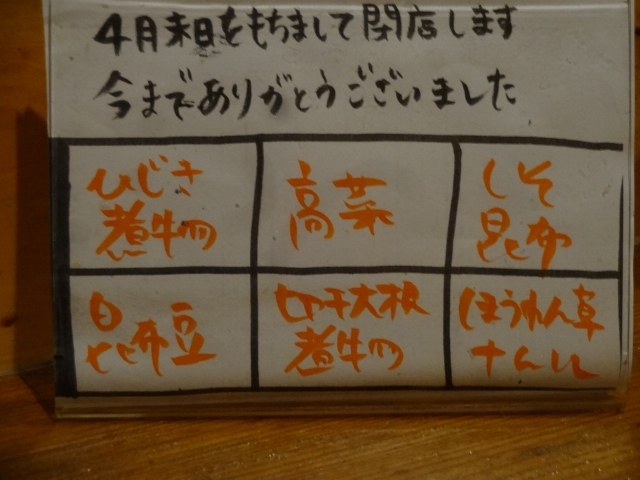 4月末日をもちまして閉店します
今までありがとうございました
ひじき
煮物
高菜
しそ
昆布
昆布豆
切干大根
煮物
ほうれん草
ナムル